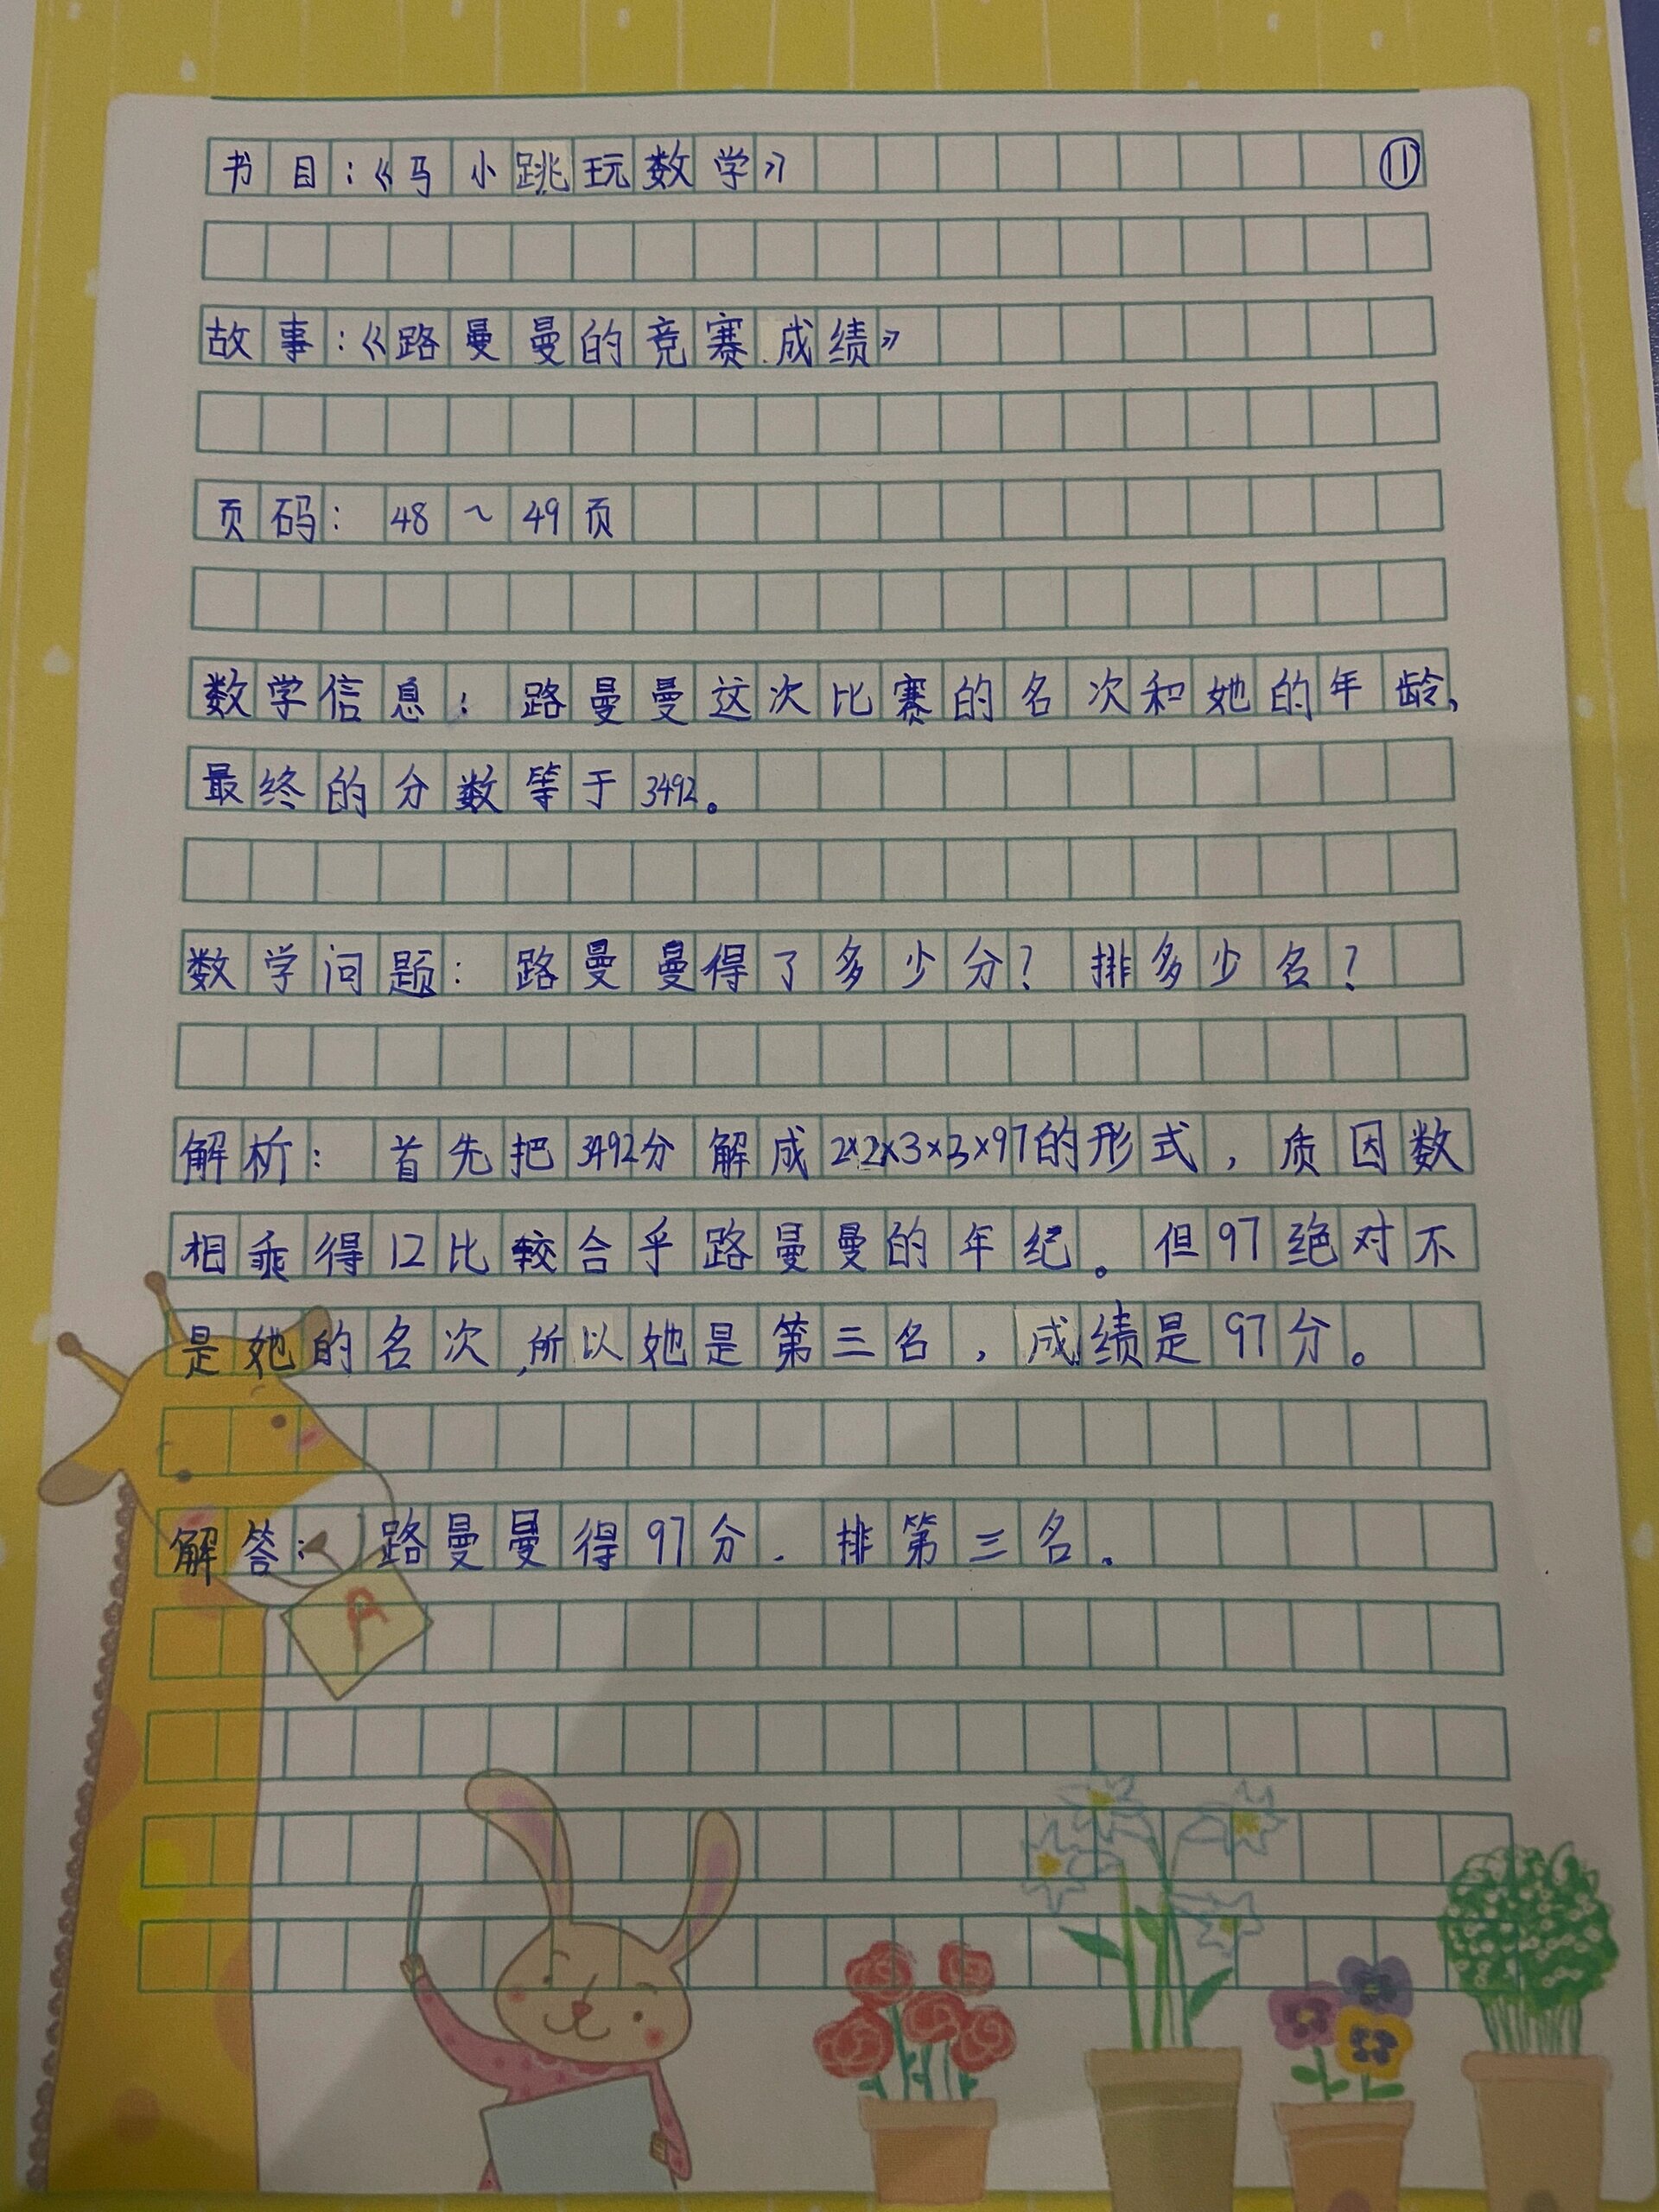 书目:《马小跳玩数学》 ⑪
故事:《路曼曼的竞赛成绩》
页码: 48~49页
数学信息: 路曼曼这次比赛的名次和她的年龄、
最终的分数等于3492。
数学问题: 路曼曼得了多少分? 排多少名?
解析: 首先把3492分解成2×2×3×3×97的形式,质因数
相乘得12比较合乎路曼曼的年纪。但97绝对不
是她的名次,所以她是第三名,成绩是97分。
解答: 路曼曼得97分.排第三名。
A